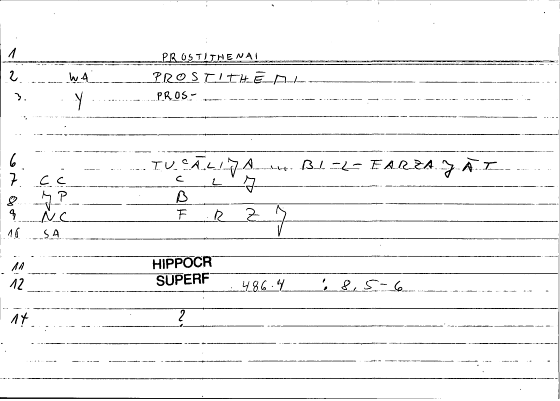 1 PROSTITHENAI
2. WA PROSTITHĒMI
3. Y PROS-
6 TUʿĀLIǦA ... BI-L-FARZAǦĀT
7 CC C L Ǧ
8 ǦP B
9 NC F R Z Ǧ
10 SA
11 HIPPOCR
12 SUPERF 486.4 : 8, 5-6
14 ?